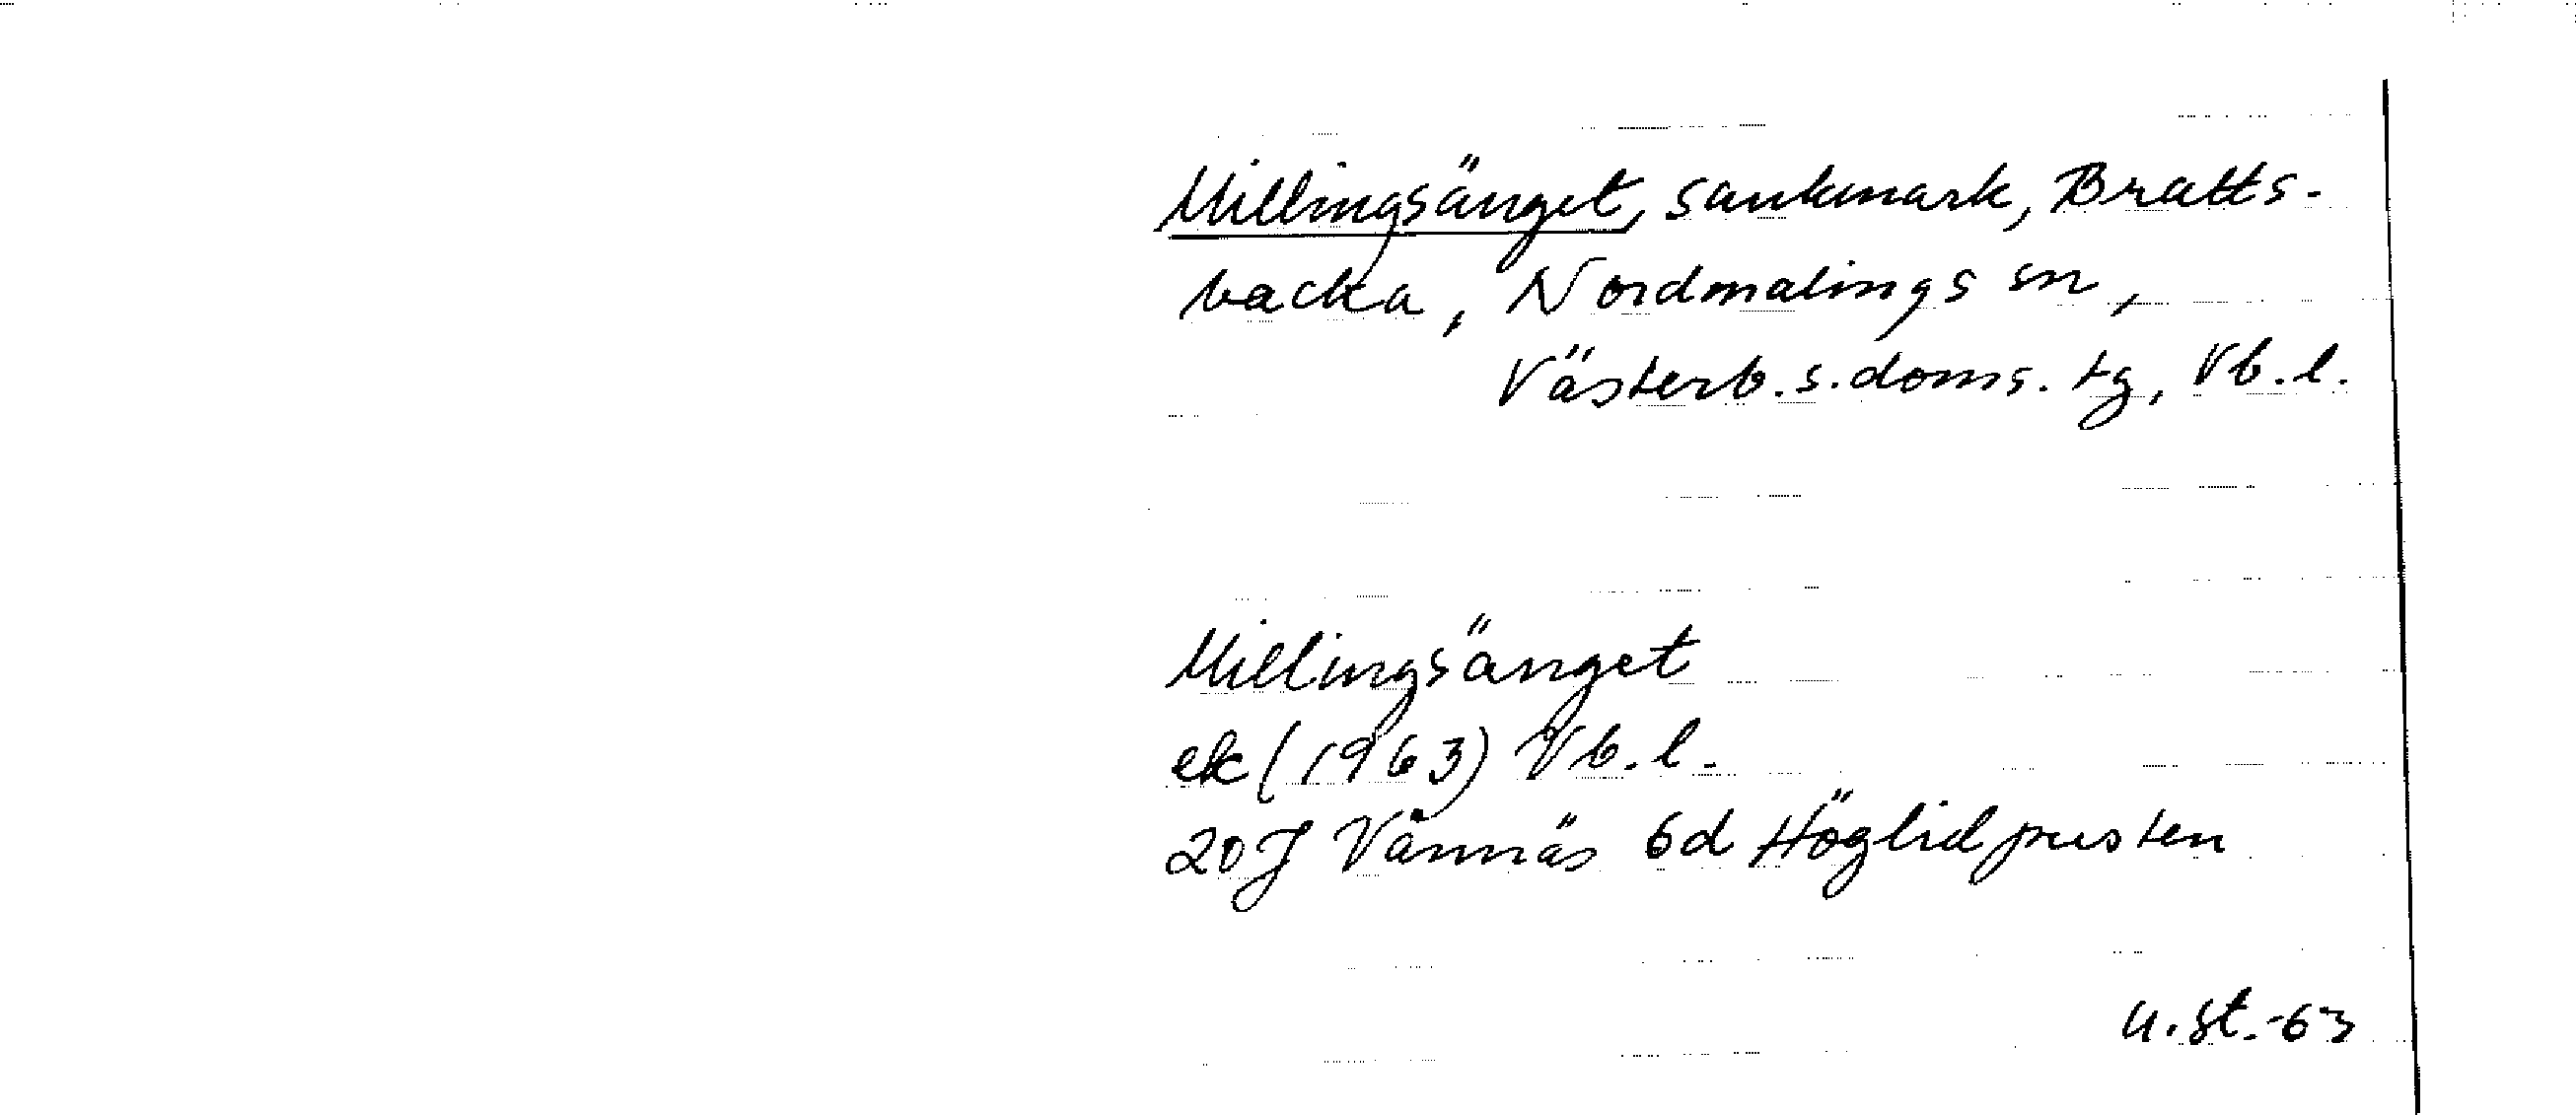 Millingsänget, sankmark, Bratts-
backa, Nordmalings sn,
Västerb.s.doms.tg, Vb.l.
Millingsänget
ek (1963) Vb.l.
20J Vännäs 6d Höglidprusten
u.st.-63